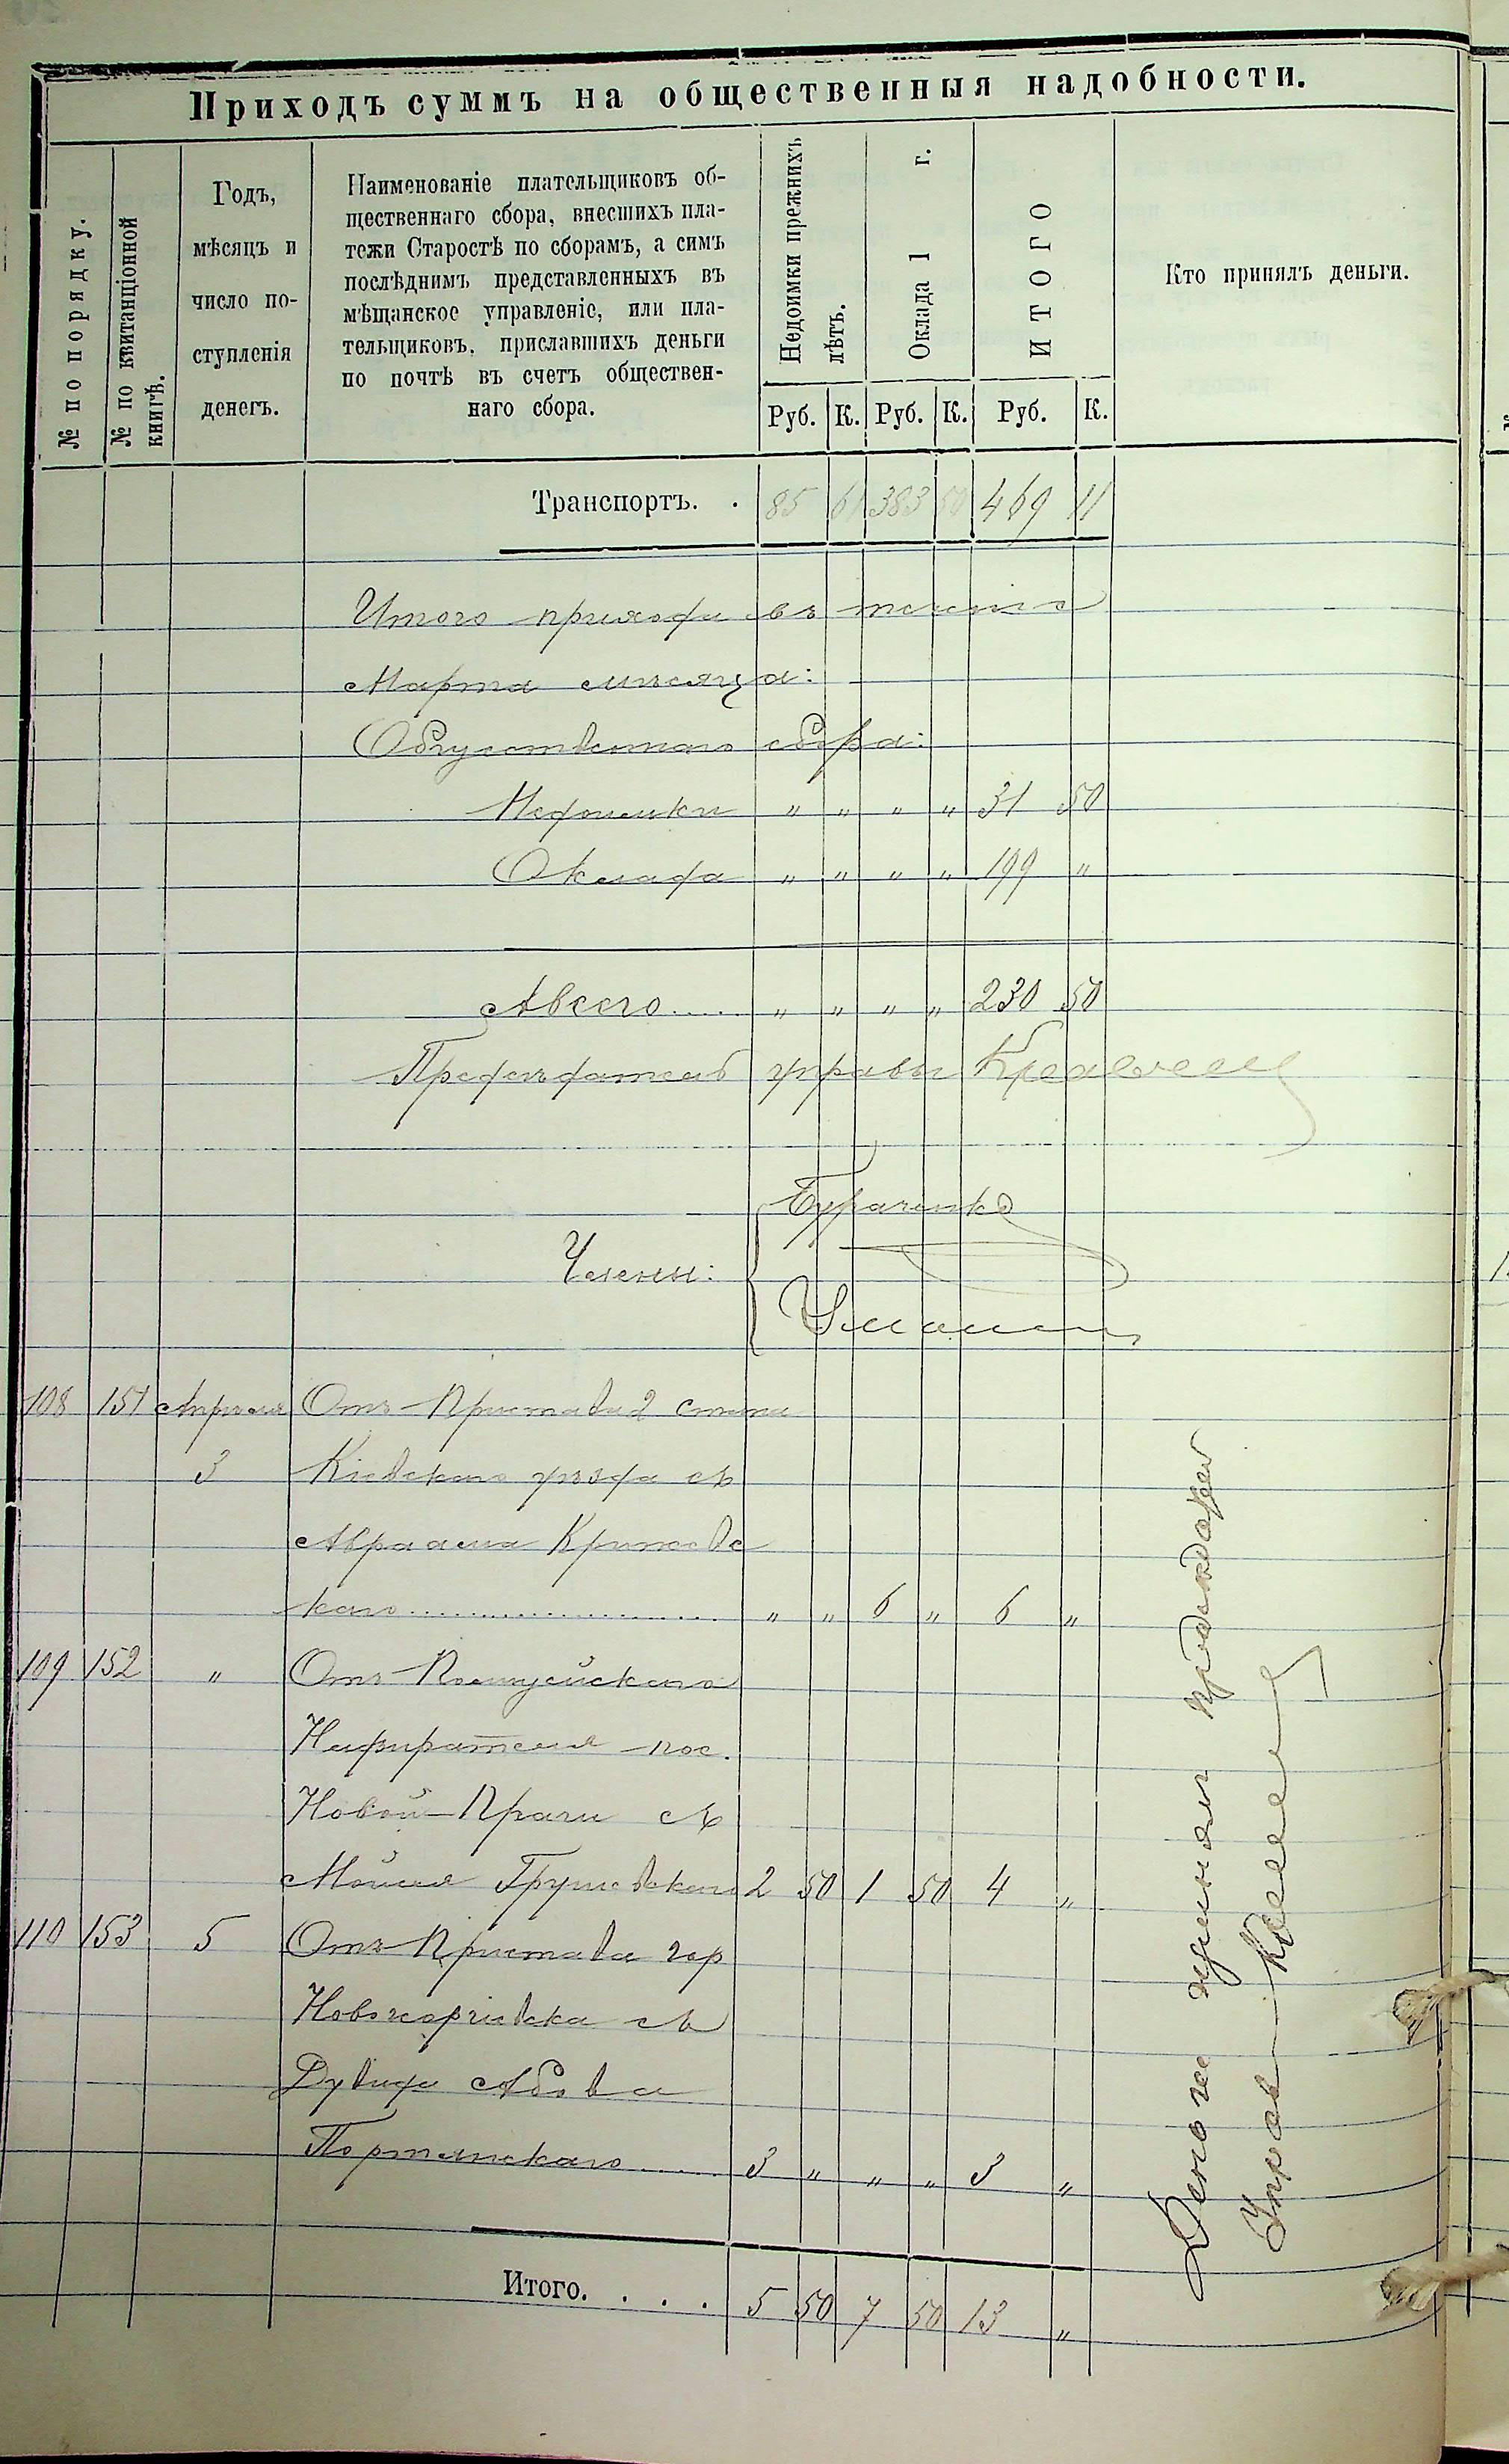 Приходъ суммъ на общественныя надобности.
№ по порядку.
№ по квитанціонной
книгѣ.
Годъ,
мѣсяцъ и
число по-
ступленія
денегъ.
Наименованіе плательщиковъ об-
щественнаго сбора, внесшихъ пла-
тежи Старостѣ по сборамъ, а симъ
послѣднимъ представленныхъ въ
мѣщанское управленіе, или пла-
тельщиковъ, приславшихъ деньги
по почтѣ въ счетъ обществен-
наго сбора.
Недоимки прежнихъ
лѣтъ.
Оклада 1 г.
ИТОГО
Кто принялъ деньги.
Руб. К. Руб. К. Руб. К.
Транспортъ. . 85 61 383 50 469 11
Итого прихода въ теченіе
Марта мѣсяца:
Общественнаго сбора:
Недоимки " " " " 31 50
Оклада " " " " 199 "
А всего..... " " " " 230 50
Предсѣдатель управы
Члены:
Бураченко
108 151 Апрѣля Отъ Пристава 2 стана
3 Кіевскаго уѣзда съ
Авраама Крижевс
каго.................... " " 6 " 6 "
109 152 " Отъ Полицейскаго
Надзирателя пос.
Новой-Праги съ
Мойсея Грушевскаго 2 50 1 50 4 "
110 153 5 Отъ Пристава гор
Новогеоргіевска съ
Дувида Абова
Портянскаго..... 3 " " " 3 "
Итого. . . . 5 50 7 50 13 "
Деньги принялъ
Управы